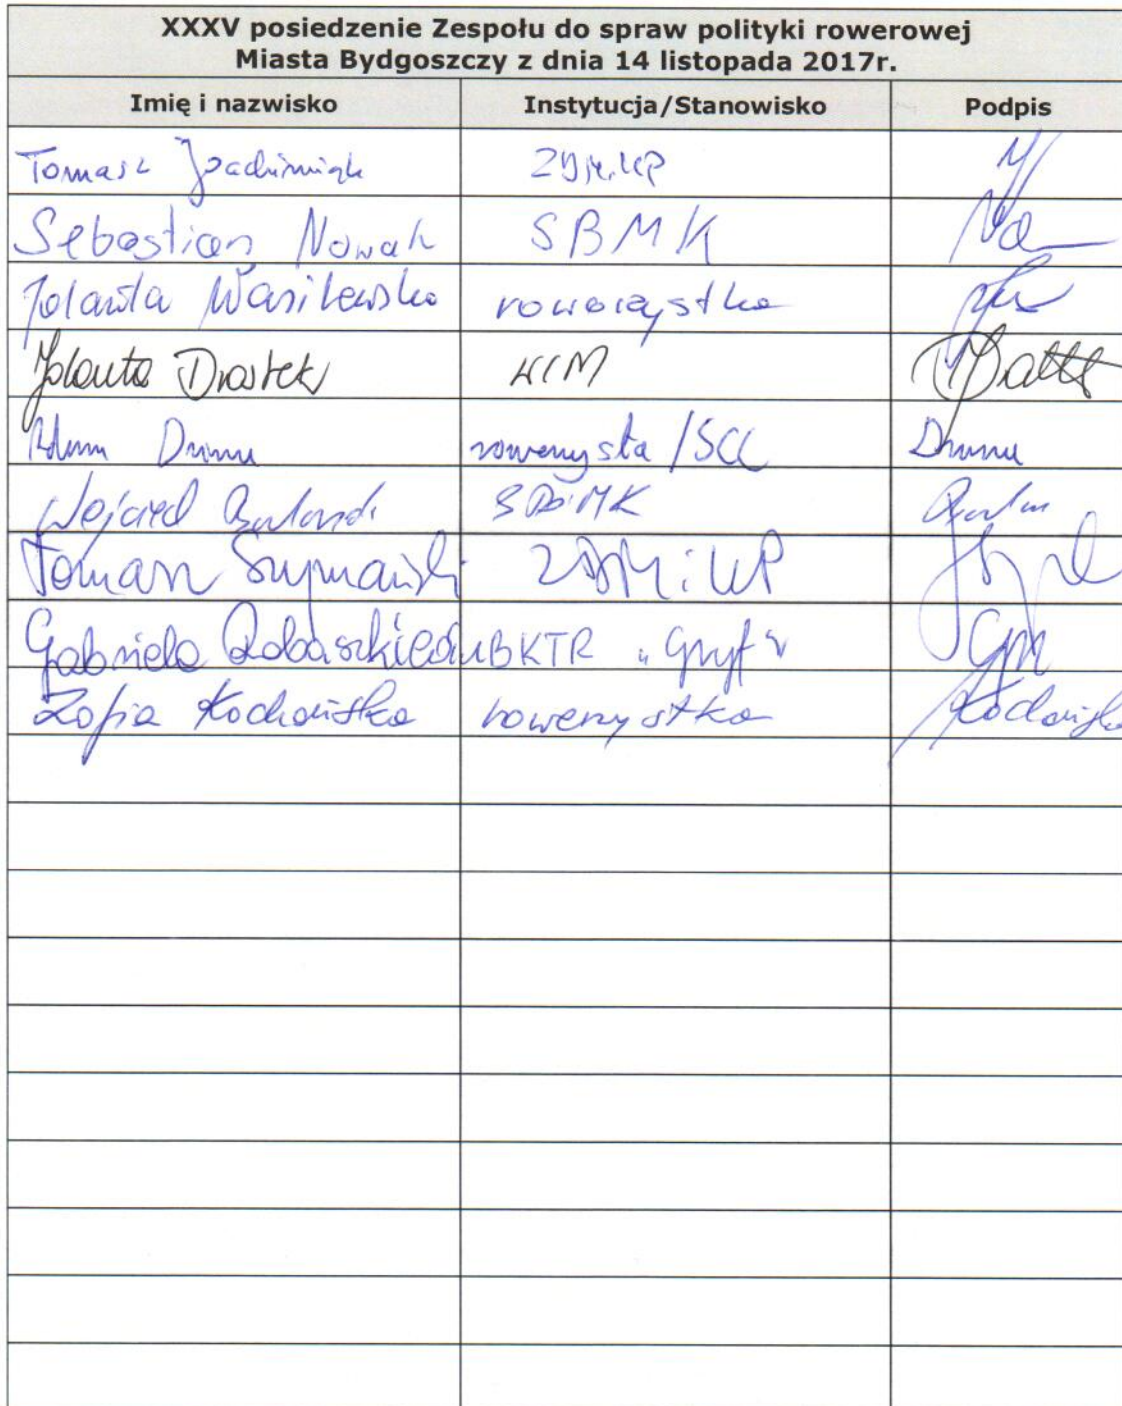 XXXV posiedzenie Zespołu do spraw polityki rowerowej
Miasta Bydgoszczy z dnia 14 listopada 2017r.
Imię i nazwisko Instytucja/Stanowisko Podpis
Tomasz
Sebastian Nowak SBMK
Jolanta Wasilewska rowerzystka
Jolanta Drastek WIM
rowerzysta /SCC
Wojciech
Tomasz Szymański ZDMiKP
Gabriela BKTR „Gryf"
Zofia Kochańska rowerzystka Kochańska